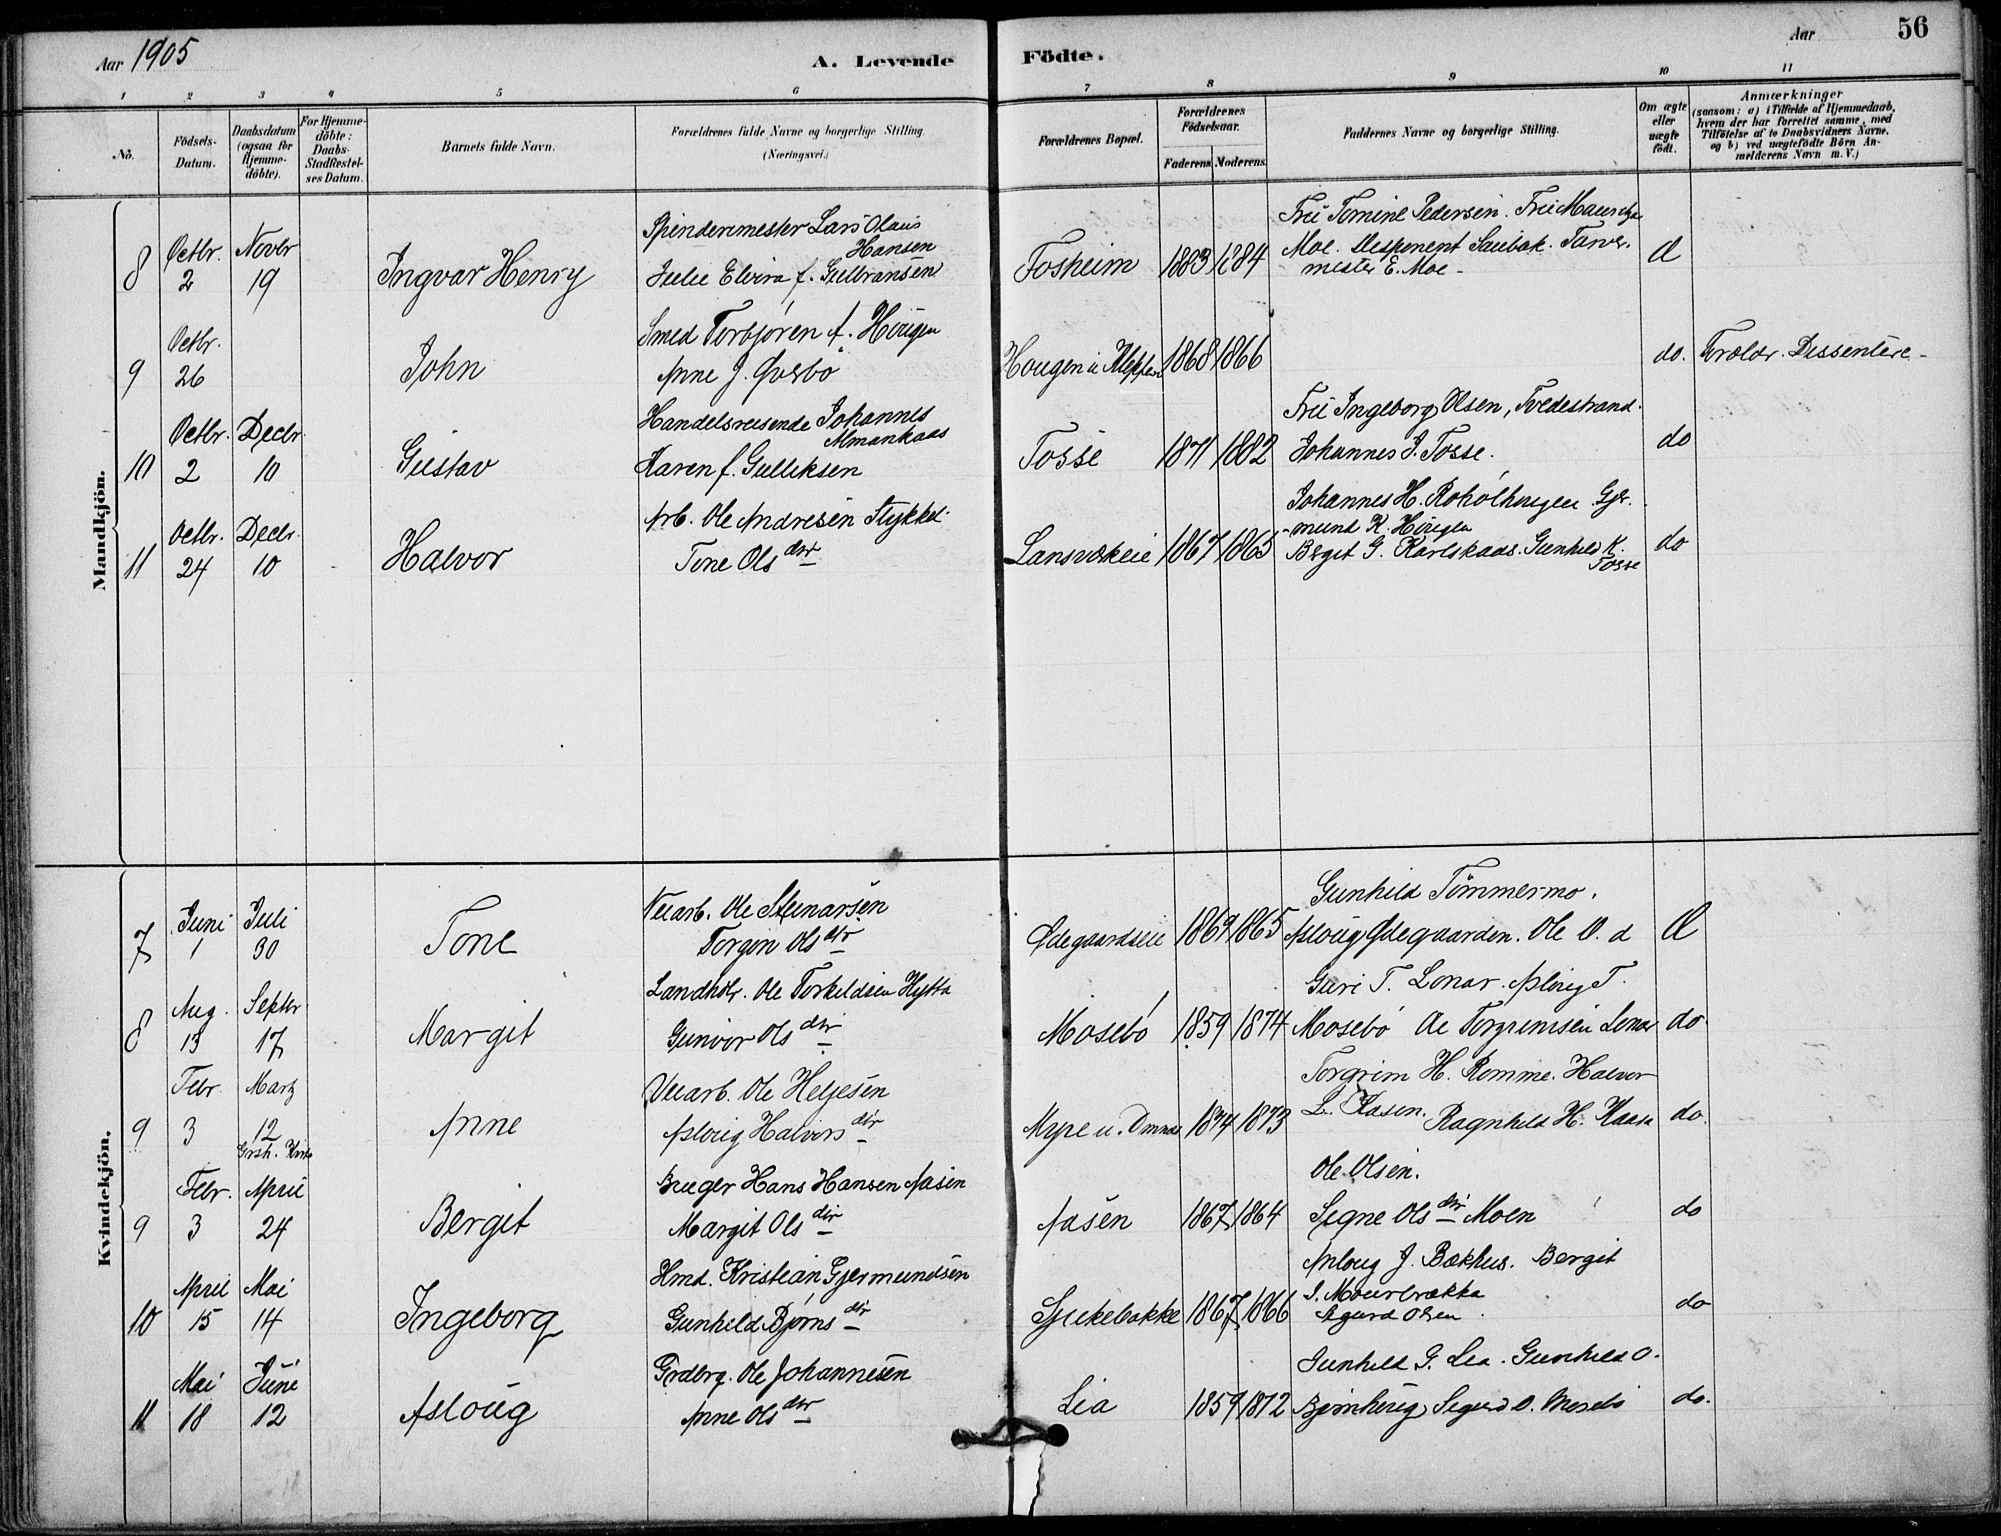 Aar 1905
A. Levende
Födte.
Aar
56
1 2 3 4 5 6 7 8 9 10 11
No.
Födsels-Datum.
Daabsdatum (ogsaa for Hjemme-döbte).
For Hjemme-döbte: Daabs-Stadfæstel-ses Datum.
Barnets fulde Navn.
Forældrenes fulde Navne og borgerlige Stilling.
(Næringsvei.)
Forældrenes Bopæl.
Forældrenes Födselsaar.
Faderens. Moderens.
Faddernes Navne og borgerlige Stilling.
Om ægte eller uægte födt.
Anmærkninger
(saasom: a) i Tilfælde af Hjemmedaab,
hvem der har forrettet samme, med
Tilföielse af to Daabsvidners Navne.
og b) ved uægtefödte Börn An-
melderens Navn m. V.)
Mandkjön.
8
Octbr. 2
Novbr 19
Ingvar Henry
Spinderimester Lars Olaus
Hansen
Julie Elvira f. Gulbransen
Fosheim
1883 1884
Fru Tomine Pedersen. Fru
Moe. Disponent Saubak. Farver-
mester E. Moe -
Æ
9
Octbr. 26
John
Smed Torbjøren A. Hougen
Anne J. Øvebø
Hougen u. Kleppen
1868 1866
do.
Forældr. Dissentere -
10
Octbr. 2
Decbr. 10
Gustav
Handelsreisende Johannes
Almankaas
Karen f. Gulliksen
Fosse
1871 1882
Fru Ingeborg Olsen, Tvedestrand.
Johannes J. Fosse.
do
11
Octbr. 24
Decbr. 10
Halvor
Arb. Ole Andresen Stykket
Tone Olsdtr
1867 1865
Johannes H. Roholthaugen Gjer-
mund K. Hougen
Bergit G. Karlskaas. Gunhild K.
Fosse
do
Kvindekjön.
7
Juni 1
Juli 30
Tone
Veiarb. Ole Steinarsen
Torgon Olsdtr
Ødegaardseie
1869 1865
Gunhild Tømmermo.
Asloug Ødegaarden. Ole O. d
Æ
8
Aug. 13
Septbr 17
Margit
Landhdlr. Ole Torkildsen Hytta
Gunvor Olsdtr
Mosebø
1859 1874
Guri T. Lonar. Asloug T.
Mosebø Ole Torgrimsen Lonar
do
9
Febr. 3
Marts 12
Grsh. Kirke
Anne
Veiarb. Ole Heljesen
Asloug Halvorsdtr
Myre u.
1874 1873
Torgrim H. Romme. Halvor
L. Kasen. Ragnhild H. Kaasa
do.
9
Febr. 3
April 24
Bergit
Bruger Hans Hansen Aasen
Margit Olsdtr
Aasen
1867 1864
Ole Olsen.
Signe Olsdtr Moen
do
10
April 15
Mai 14
Ingeborg
Hmd. Kristian Gjermundsen
Gunhild Bjørnsdtr
Sjukebakke
1867 1866
Anloug J. Bækhus. Bergit
S. Mourbrækka
Sigurd Olsen
do
11
Mai 18
Juni 12
Asloug
Grdbrg. Ole Johannesen
Anne Olsdtr
Lia
1859 1872
Gunhild G. Lia. Gunhild O.
Bjørnhaug Sigurd O. Mosebø
do.